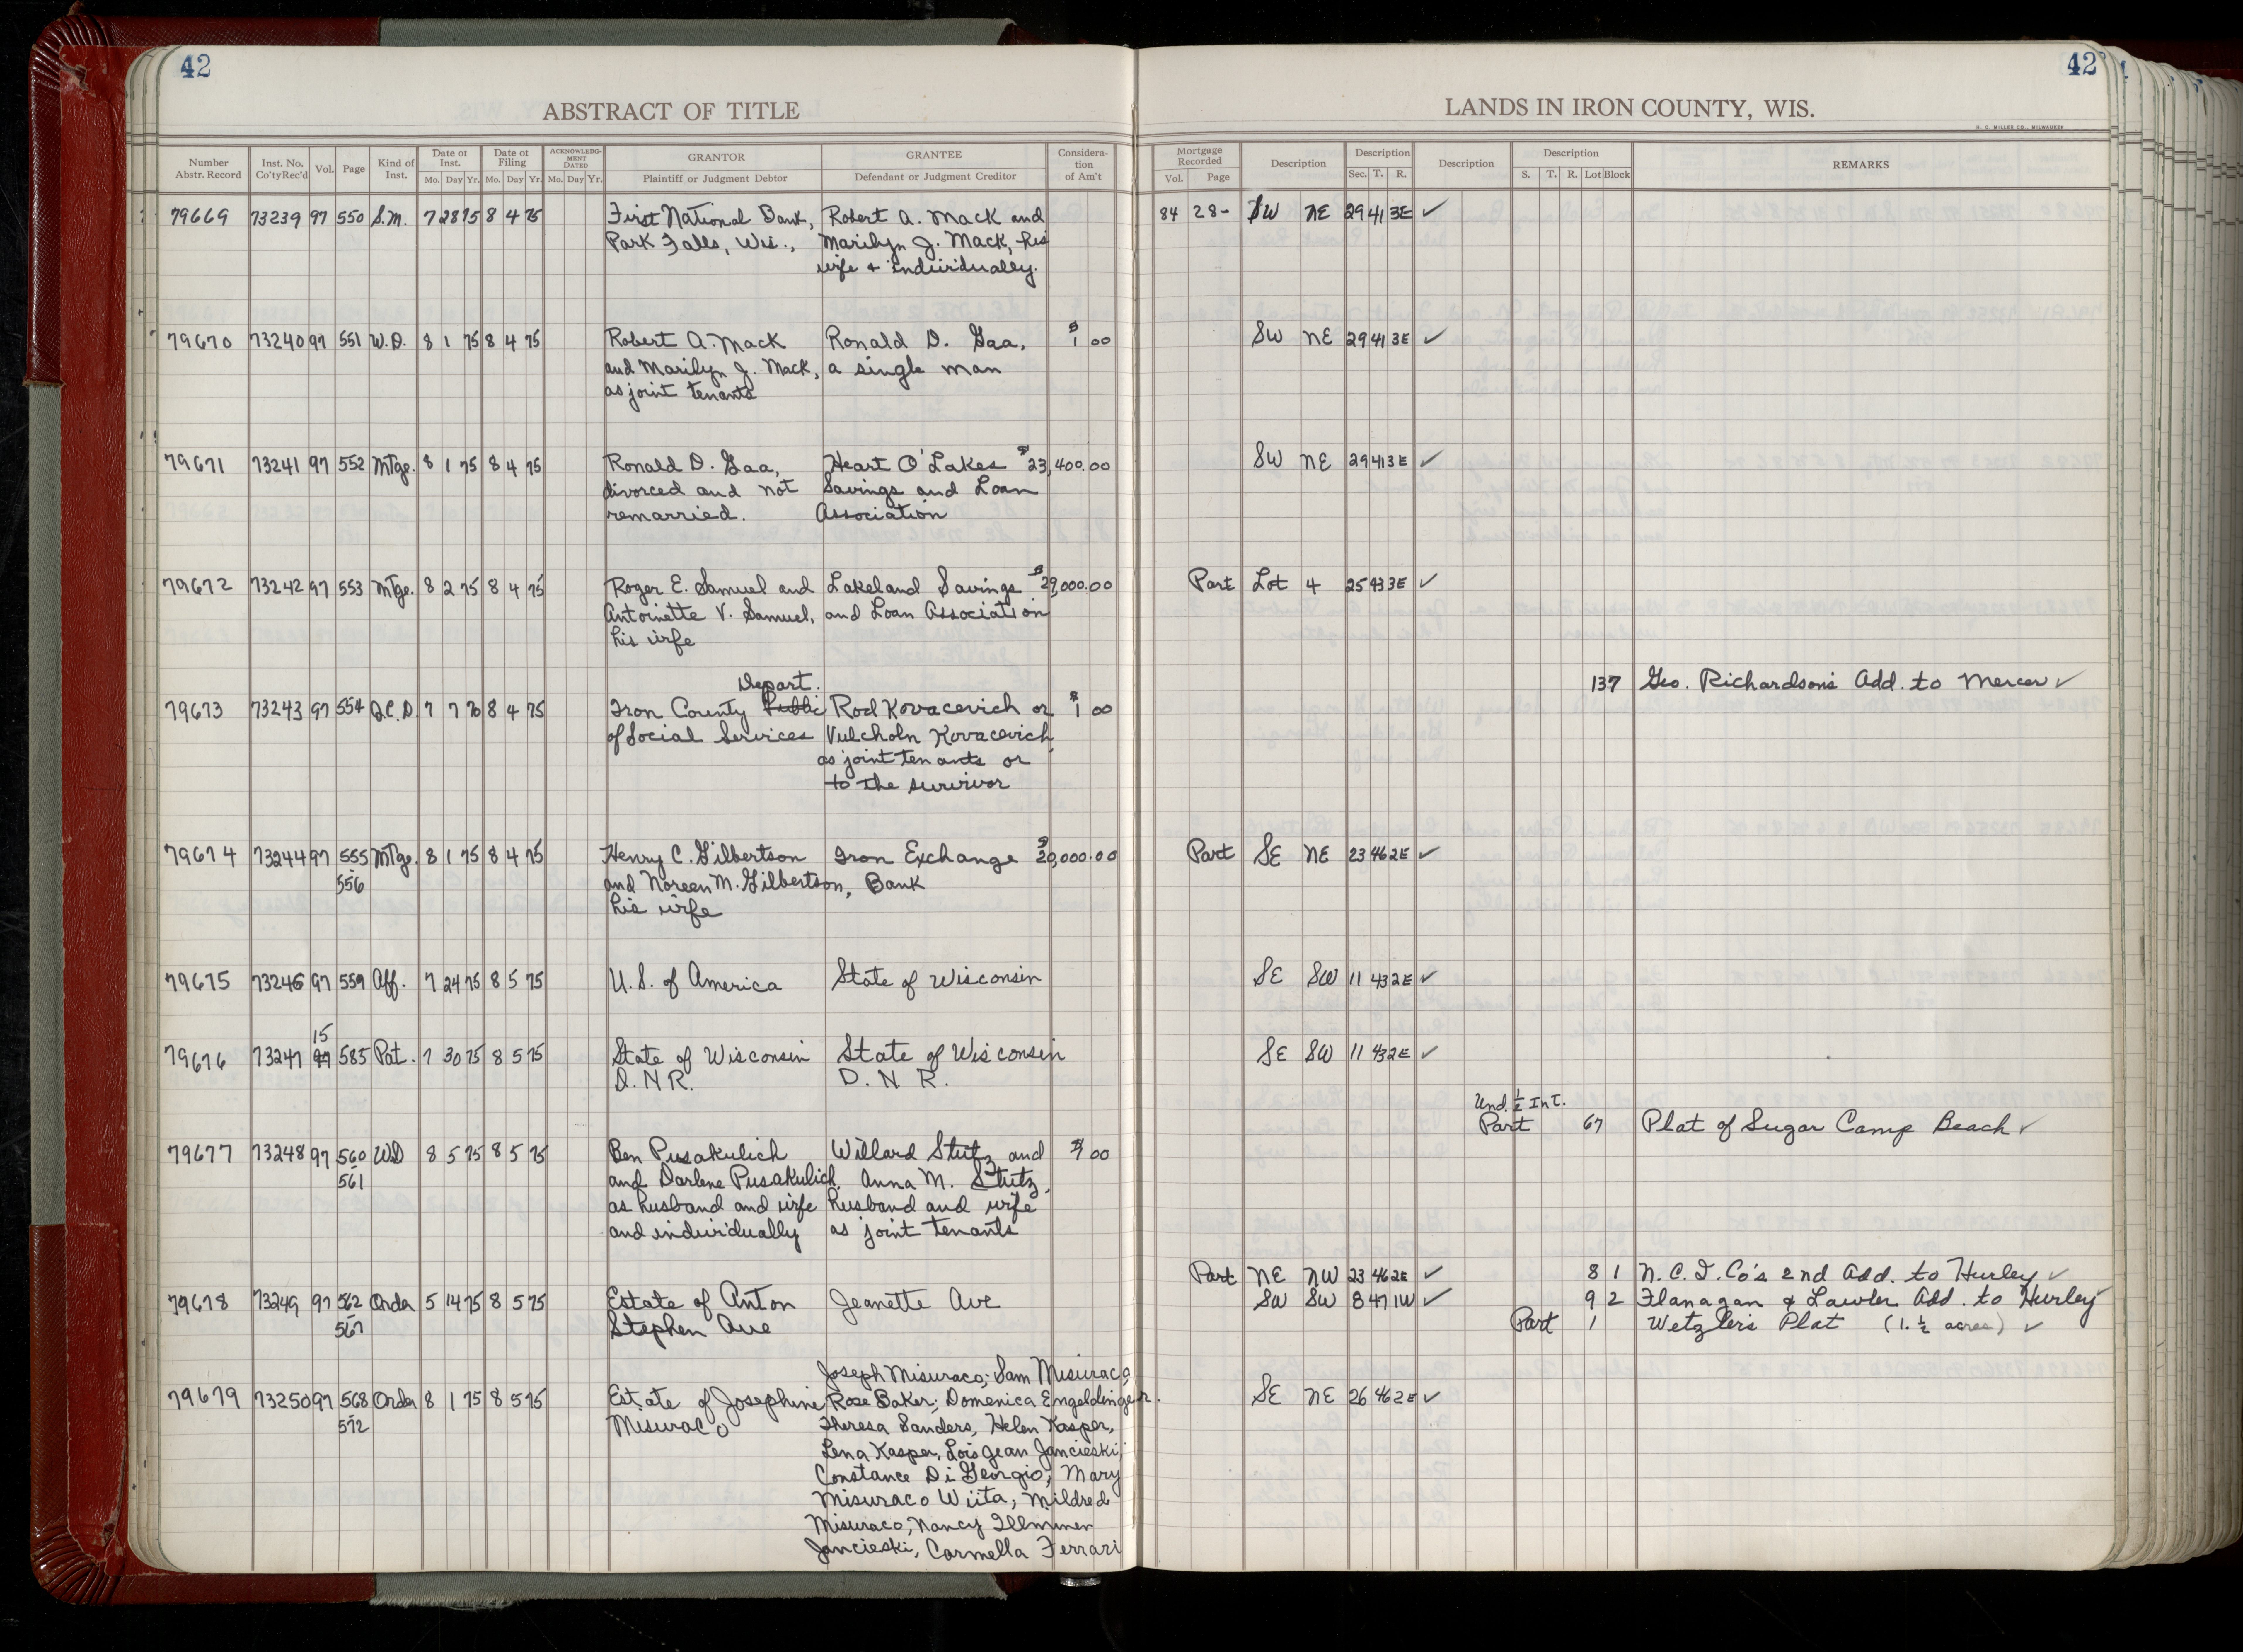 42
42
ABSTRACT OF TITLE
LANDS IN IRON COUNTY, WIS.
H. C. MILLER CO., MILWAUKEE
Number Abstr. Record Inst. No. Co'ty Rec'd Vol. Page Kind of Inst. Date of Inst. Mo. Day Yr. Date of Filing Mo. Day Yr. ACKNOWLEDGMENT DATED Mo. Day Yr. GRANTOR Plaintiff or Judgment Debtor GRANTEE Defendant or Judgment Creditor Consideration of Am't
Mortgage Recorded Vol. Page Description Description Sec. T. R. Description Description S. T. R. Lot Block REMARKS
79669 73239 97 550 S.M. 7 28 75 8 4 75 First National Bank, Robert A. Mack and 84 28- SW NE 29 41 3E ✓
Park Falls, Wis., Marilyn J. Mack, his
wife & individually.
79670 73240 97 551 W.D. 8 1 75 8 4 75 Robert A. Mack Ronald D. Gaa, $1 00 SW NE 29 41 3E ✓
and Marilyn J. Mack, a single man
as joint tenants
79671 73241 97 552 Mtge. 8 1 75 8 4 75 Ronald D. Gaa, Heart O'Lakes $23,400.00 SW NE 29 41 3E ✓
divorced and not Savings and Loan
remarried. Association
79672 73242 97 553 Mtge. 8 2 75 8 4 75 Roger E. Samuel and Lakeland Savings $29,000.00 Part Lot 4 25 43 3E ✓
Antoinette V. Samuel, and Loan Association
his wife
Depart. 137 Geo. Richardson's Add. to Mercer ✓
79673 73243 97 554 Q.C.D 7 7 70 8 4 75 Iron County Public Rod Kovacevich or $1 00
of Social Services Vulcholn Kovacevich
as joint tenants or
to the survivor
79674 73244 97 555 Mtge. 8 1 75 8 4 75 Henry C. Gilbertson Iron Exchange $20,000.00 Part SE NE 23 46 2E ✓
556 and Noreen M. Gilbertson, Bank
his wife
79675 73246 97 559 Aff. 7 24 75 8 5 75 U.S. of America State of Wisconsin SE SW 11 43 2E ✓
15
79676 73247 97 585 Pat. 7 30 75 8 5 75 State of Wisconsin State of Wisconsin SE SW 11 43 2E ✓
D.N.R. D.N.R.
Und. ½ Int.
Part 67 Plat of Sugar Camp Beach ✓
79677 73248 97 560 WD 8 5 75 8 5 75 Ben Pusakulich Willard Stutz and $1 00
561 and Darlene Pusakulich, Anna M. Stutz,
as husband and wife husband and wife
and individually as joint tenants
Part NE NW 23 46 2E ✓ 8 1 N.C.I. Co's 2nd Add. to Hurley ✓
79678 73249 97 562 Order 5 14 75 8 5 75 Estate of Anton Jeanette Ave SW SW 8 47 1W ✓ 9 2 Flanagan & Lawler Add. to Hurley
567 Stephen Ave Part 1 Wetzler's Plat (1.½ acres) ✓
Joseph Misuraco; Sam Misuraco,
79679 73250 97 568 Order 8 1 75 8 5 75 Estate of Josephine Rose Baker; Domenica Engeldinger. SE NE 26 46 2E ✓
572 Misuraco Theresa Sanders, Helen Kasper,
Lena Kasper, Lois Jean Jancieski,
Constance Di Georgio, Mary
Misuraco Wiita, Mildred
Misuraco, Nancy
Jancieski, Carmella Ferrari